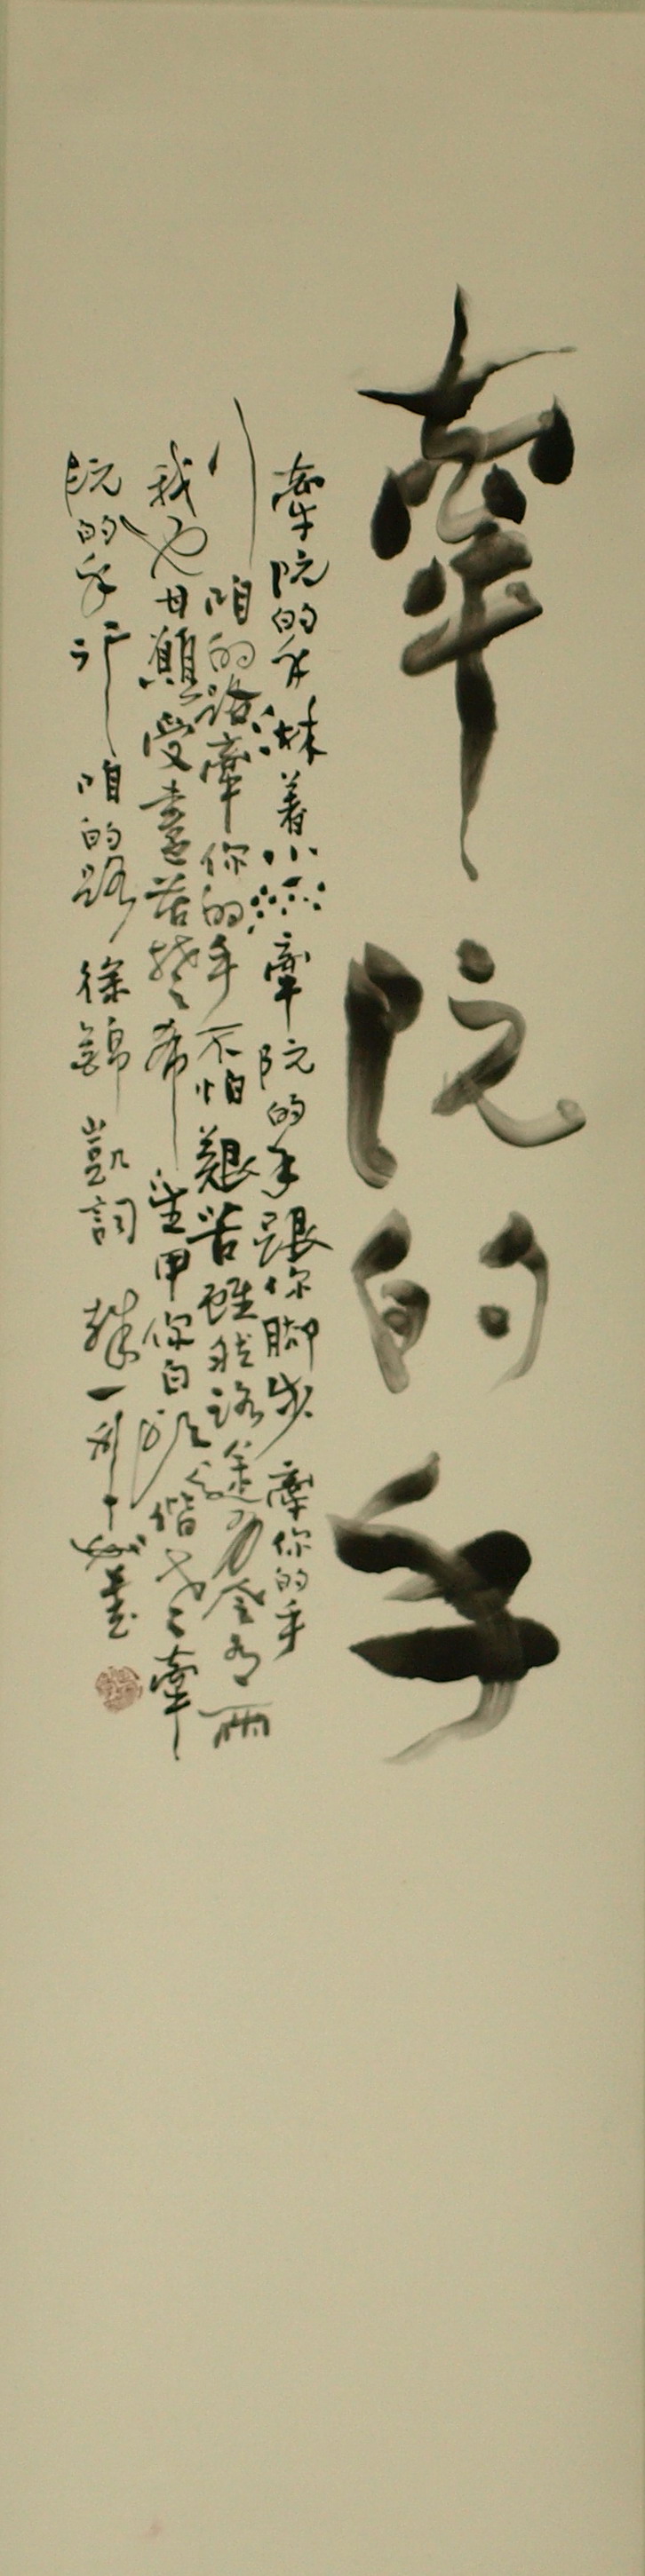 牽阮的手
牽阮的手淋著小雨牽阮的手跟你腳步牽你的手
行咱的路牽你的手不怕艱苦雖然路途有風有雨
我也甘願受盡苦楚希望甲你白頭偕老牽
阮的手行咱的路徐錦凱詞